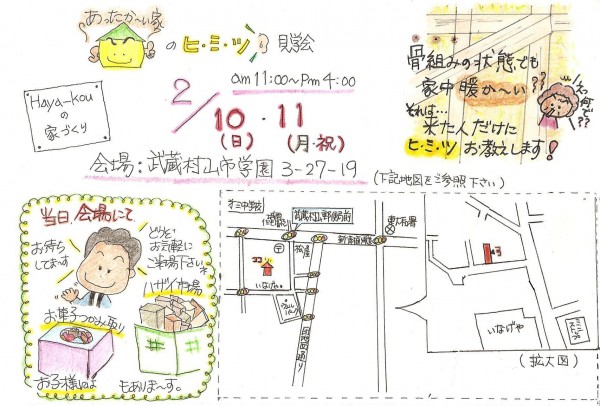 あったか〜い家
のヒ・ミ・ツ 見学会
am 11:00〜Pm 4:00
2/10・11
(日) (月・祝)
Haya-Kou
の
家づくり
会場：武蔵村山市学園 3-27-19
(下記地図をご参照下さい)
骨組みの状態でも
家中暖か〜い??
それは…
来た人だけに
ヒ・ミ・ツ お教えします!
えっ何で??
当日会場にて
お待ち
してまーす
どうぞ
お気軽に
ご来場下さいネ
ハザイ市場
お菓子つかみ取り
お子様には
もありまーす。
武蔵村山郵便局前
新青梅街道
松屋
東大和署
ココ
いなげや
団地西通り
いなげや
(拡大図)